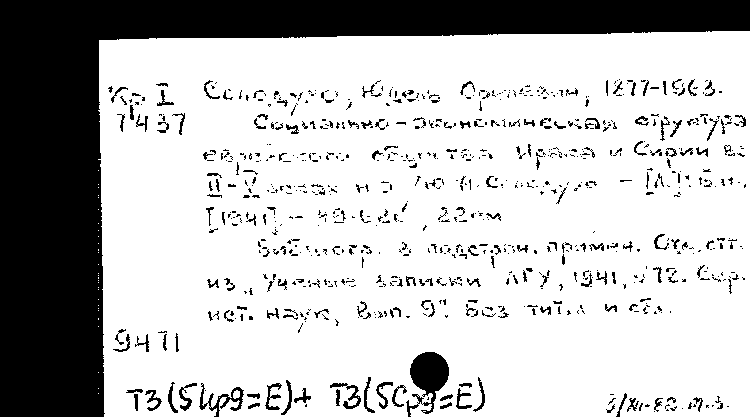 Кр I Солодухо, Юдель Орелевич, 1877-1963.
7437 Социально-экономическая структура
еврейского общества Ирака и Сирии во
II-V веках н э /Ю.А.Солодухо - [Л.]: б.и.,
[1941] - 49-62 с, 22 см
Библиогр. в подстроч. примеч. Отд. отт.
из „Ученые записки ЛГУ, 1941, №72. Сер.
ист. наук, вып. 9". Без тит.л и обл.
9471
Т3(5Ир9=Е)+ Т3(5Ср9=Е)